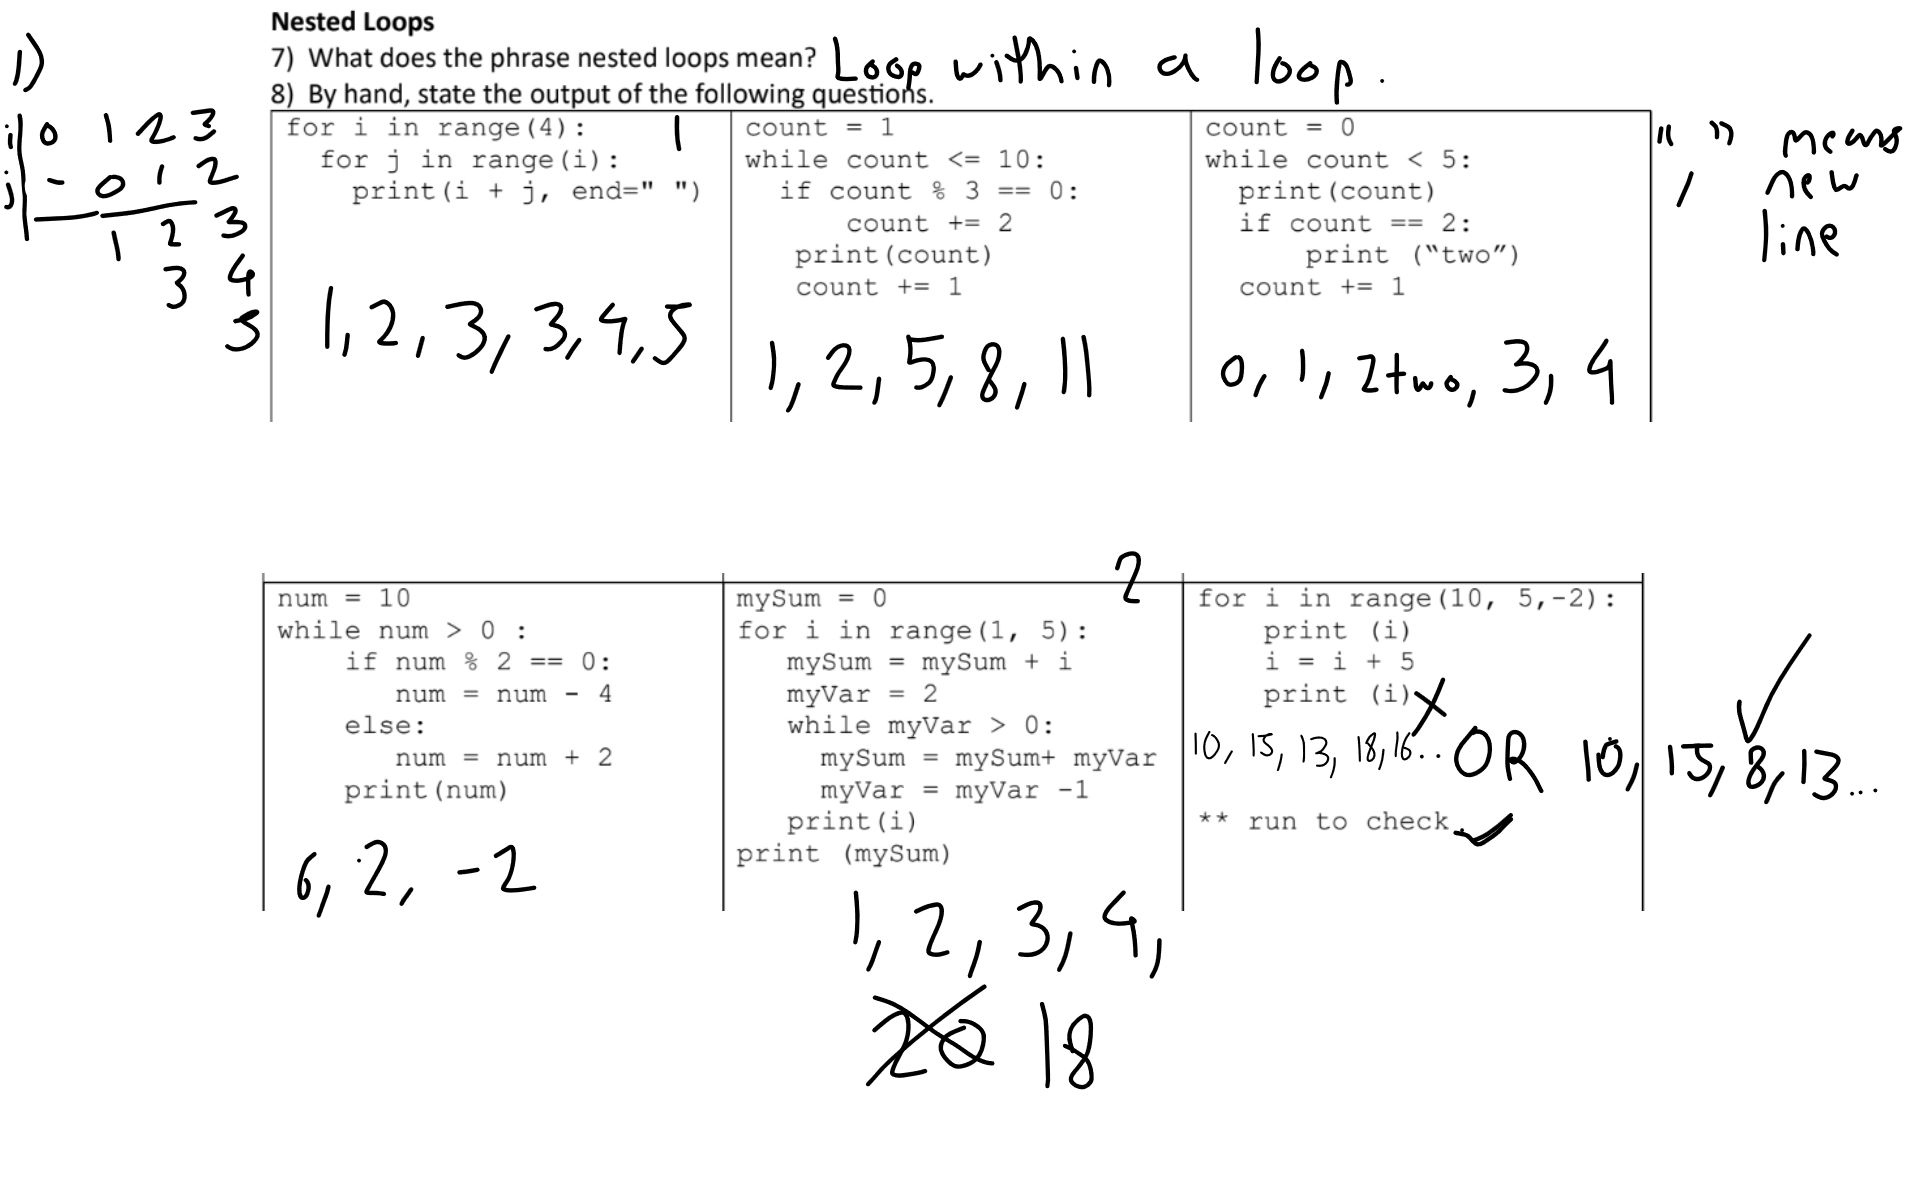 Nested Loops
1)
7) What does the phrase nested loops mean? Loop within a loop.
8) By hand, state the output of the following questions.
i 0 1 2 3
j - 0 1 2
1 2 3
3 4
5
for i in range(4): 1
for j in range(i):
print(i + j, end=" ")
1, 2, 3, 3, 4, 5
count = 1
while count <= 10:
if count % 3 == 0:
count += 2
print(count)
count += 1
1, 2, 5, 8, 11
count = 0
while count < 5:
print(count)
if count == 2:
print (“two”)
count += 1
0, 1, 2two, 3, 4
" , " means
new
line
num = 10
while num > 0 :
if num % 2 == 0:
num = num - 4
else:
num = num + 2
print(num)
6, 2, -2
2
mySum = 0
for i in range(1, 5):
mySum = mySum + i
myVar = 2
while myVar > 0:
mySum = mySum+ myVar
myVar = myVar -1
print(i)
print (mySum)
1, 2, 3, 4,
20 18
for i in range(10, 5,-2):
print (i)
i = i + 5
print (i)
10, 15, 13, 18, 16.. OR 10, 15, 8, 13...
** run to check.